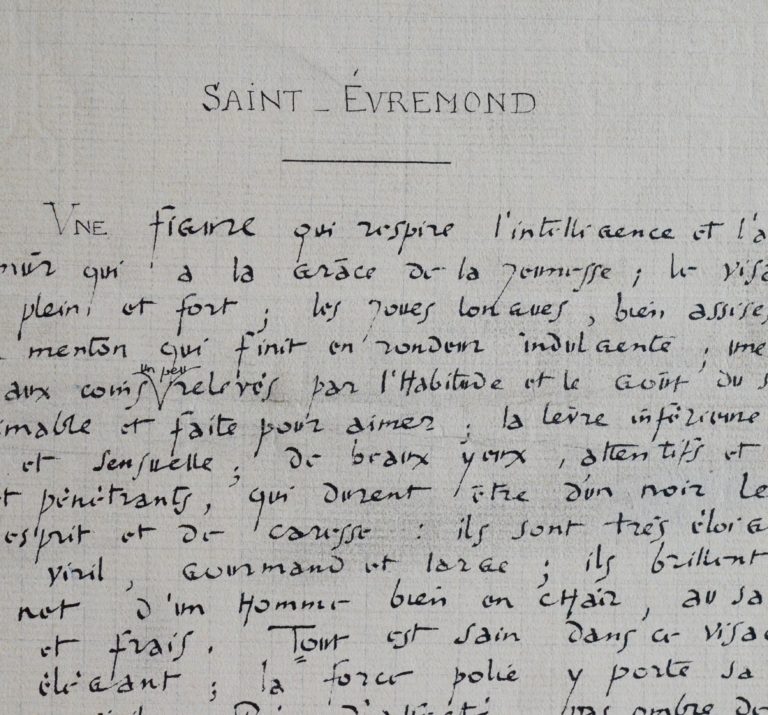 SAINT - ÉVREMOND
UNE figure qui respire l'intelligence et l'a
mûr qui a la grâce de la jeunesse ; le visa
plein et fort ; les joues longues, bien assises
menton qui finit en rondeur indulgente ; une
un peu
aux coins relevés par l'Habitude et le goût du s
imable et faite pour aimer ; la lèvre inférieure
et sensuelle ; de beaux yeux, attentifs et
et pénétrants, qui durent être d'un noir le
esprit et de caresse : ils sont très éloig
viril, gourmand et large ; ils brillent
net d'un Homme bien en chair, au sa
et frais. Tout est sain dans ce visag
élégant ; la force polie y porte sa
pas ombre de